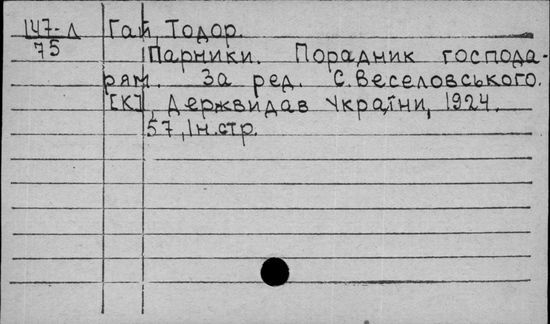 147-Л Гай, Тодор.
75 Парники. Порадник господа-
рям. За ред. С. Веселовського.
[К], Держвидав України, 1924.
57, Ін. стр.